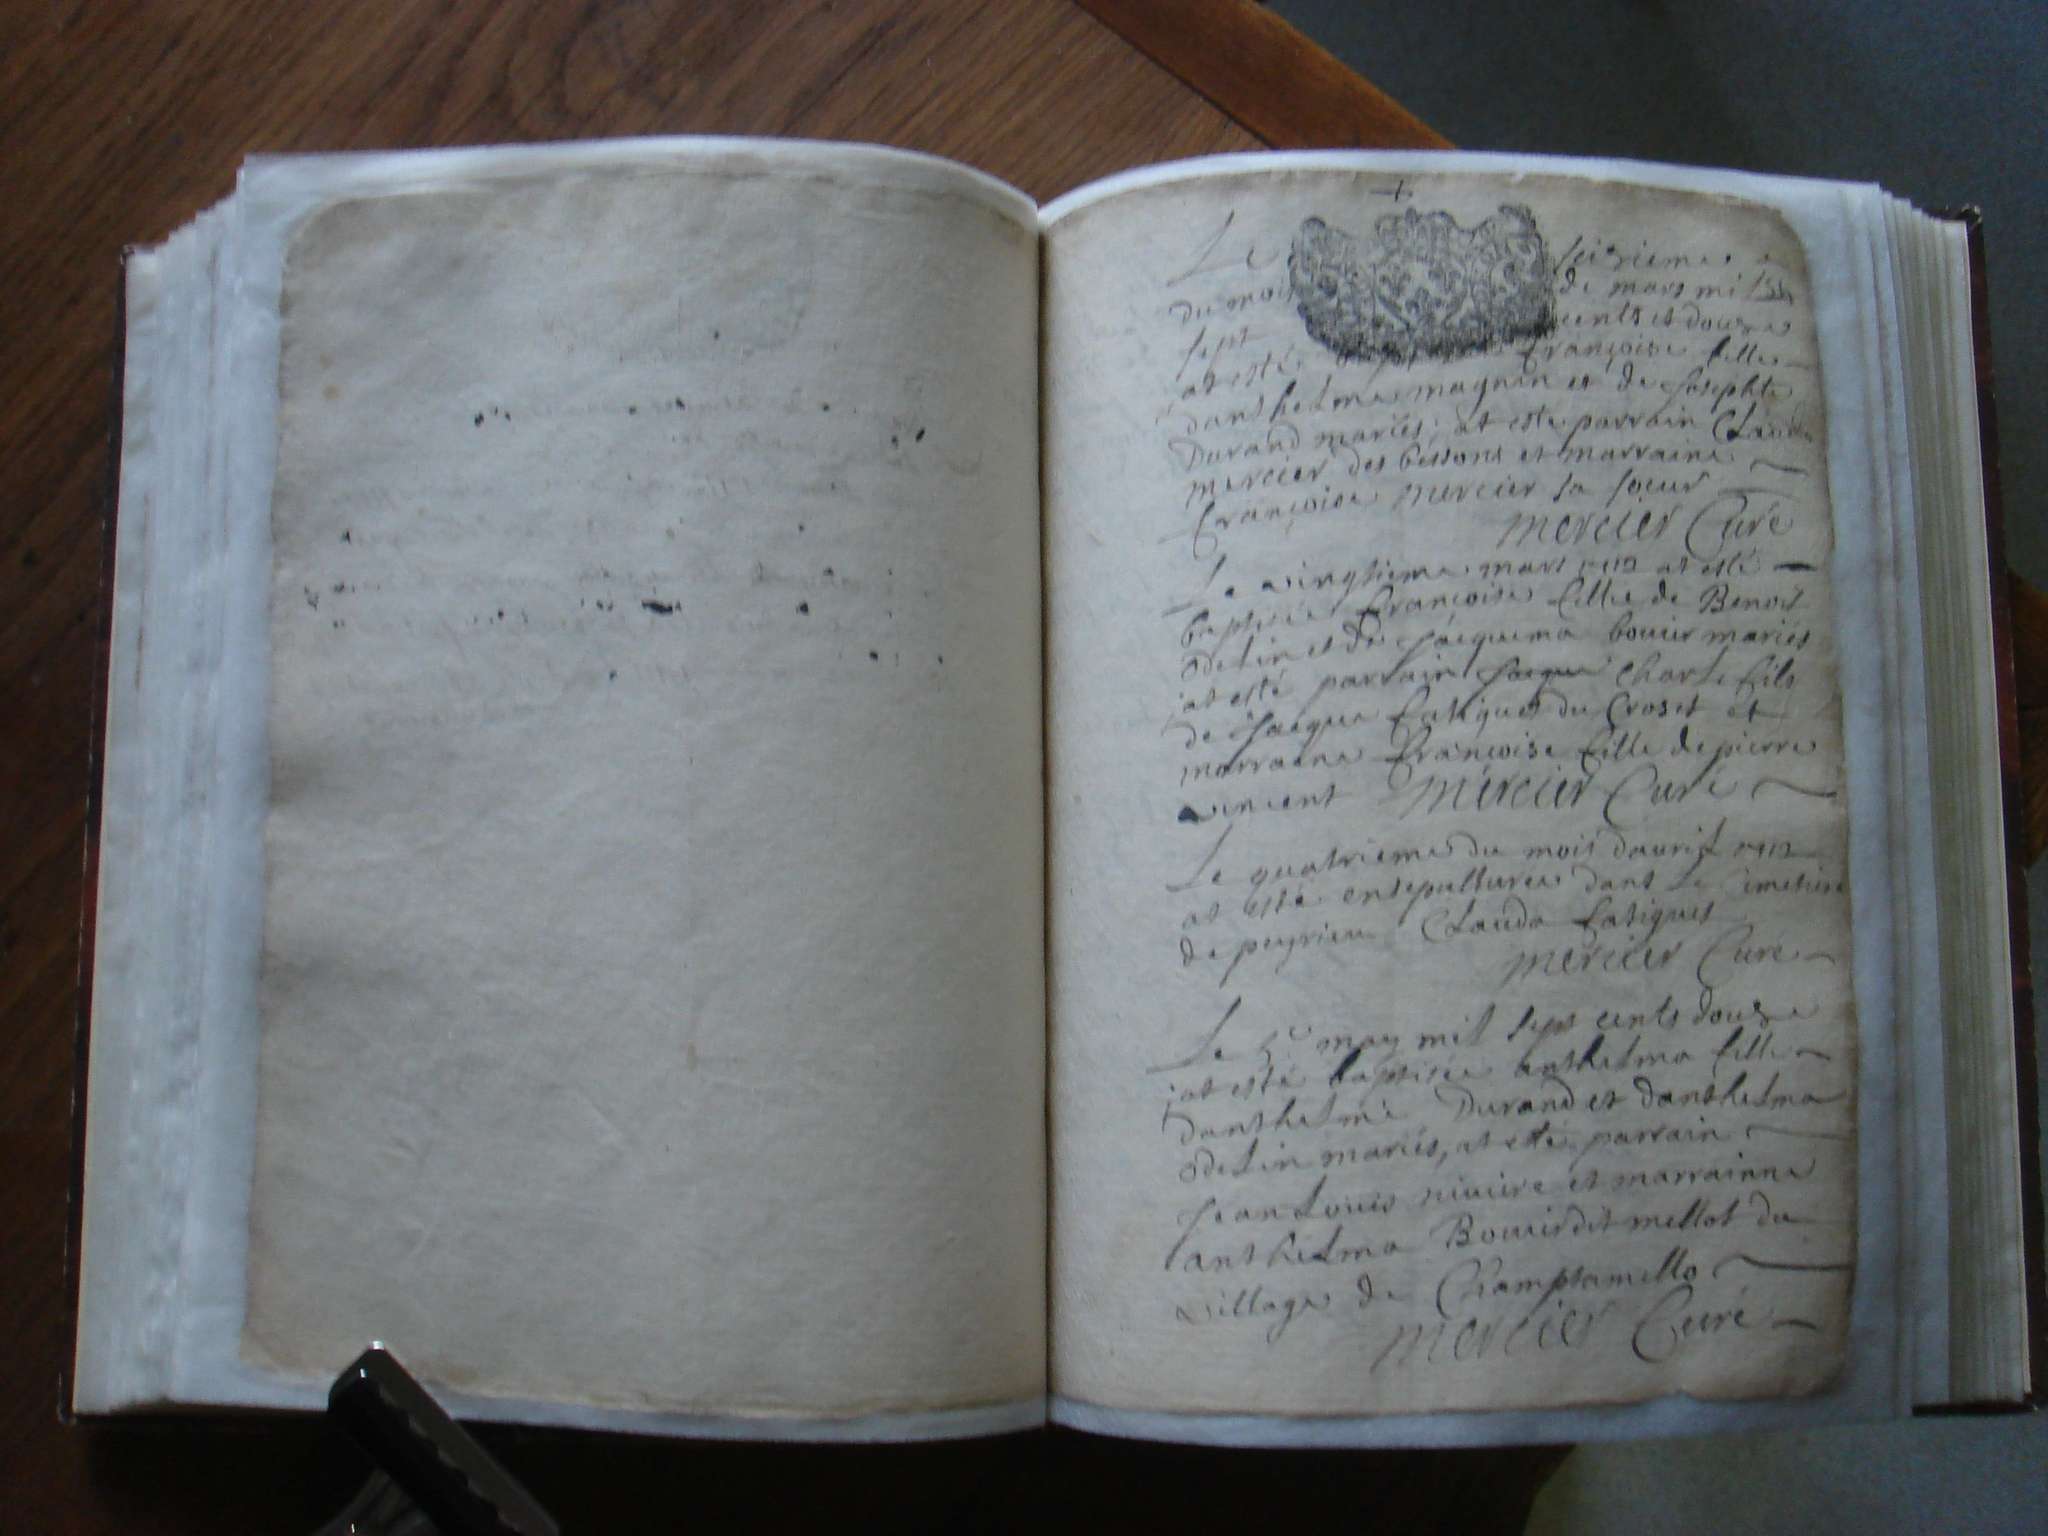 Le seizieme
du mois de mars mil
sept cents et douze
at esté baptisée françoise fille
danthelme magnin et de Josephte
Durand mariés, at esté parrain Claude
mercier des bessons et marraine
françoise mercier sa soeur
mercier Curé
Le vingtieme mars 1712 at esté
baptisée françoise fille de Benoit
odelin et de Jacquema bouvier mariés
at esté parrain Jacque Charle fils
de Jacque fatiques du Croset et
marraine françoise fille de pierre
vincent mercier Curé
Le quatrieme du mois davril 1712
at esté ensepulturee dans le Cimetiere
de peyrieu Clauda fatigues
mercier Cure
Le 5e may mil sept cents douze
at esté baptisée anthelma fille
danthelme Durand et danthelma
odelin mariés, at esté parrain
Jean Louis riviere et marrainne
anthelma Bouvier dit mellot du
village de Champtamello
mercier Curé